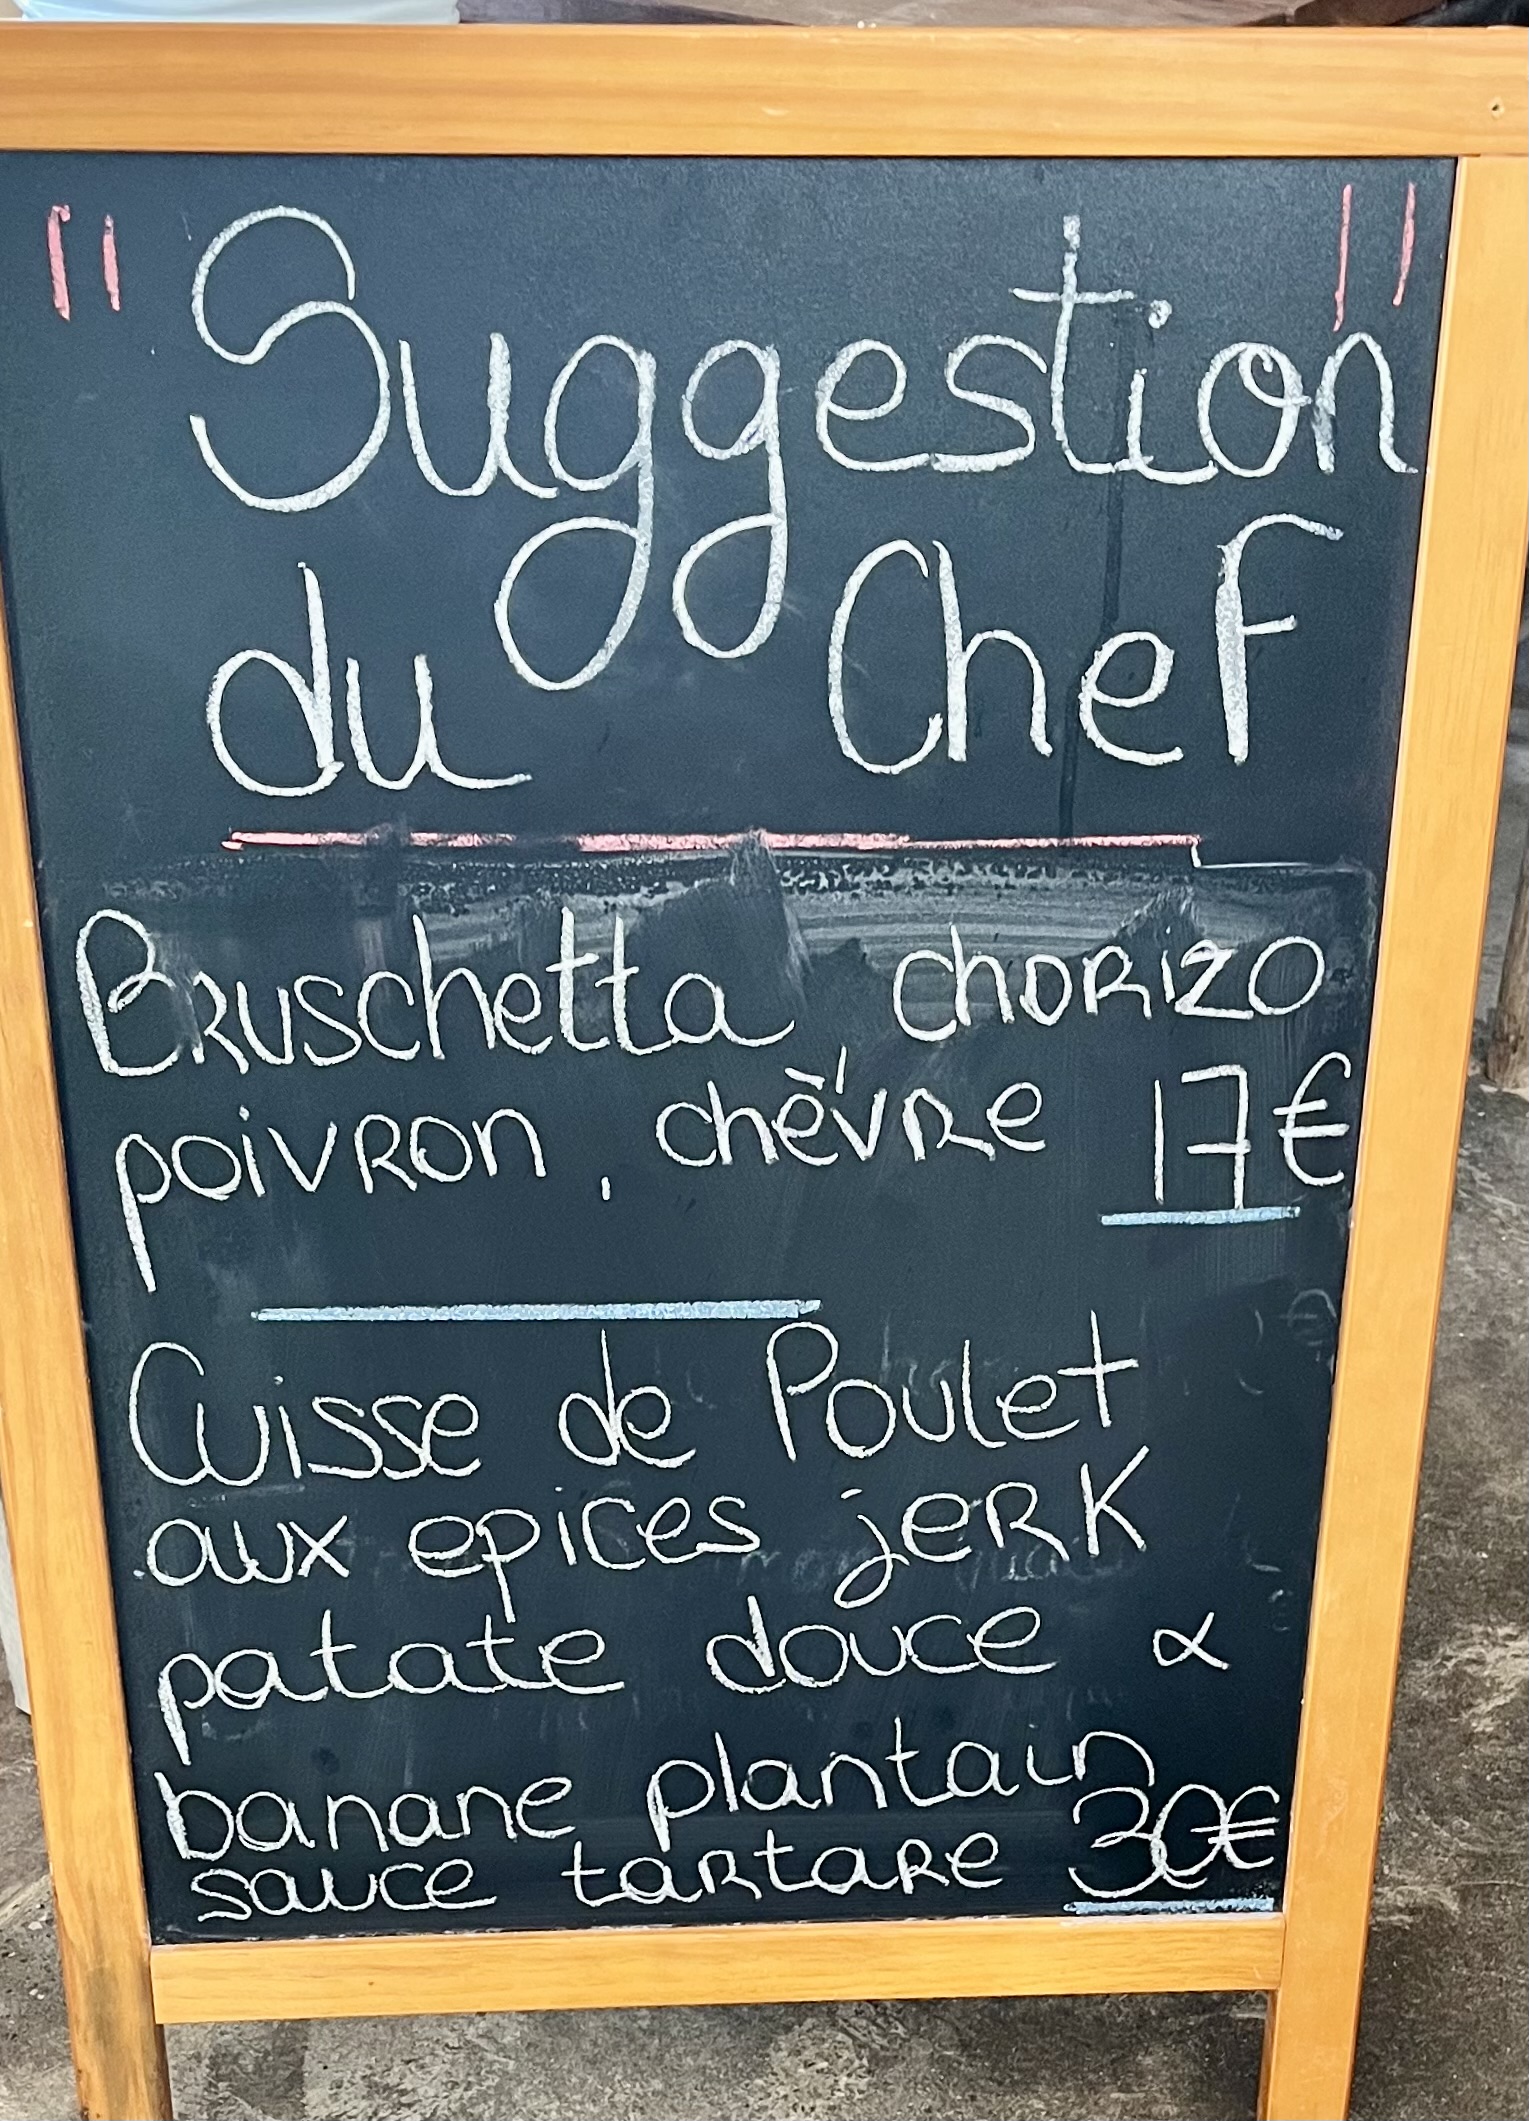 "Suggestion"
du Chef
Bruschetta, chorizo
poivron, chèvre 17€
Cuisse de Poulet
aux epices jerk
patate douce &
banane plantain
sauce tartare 30€